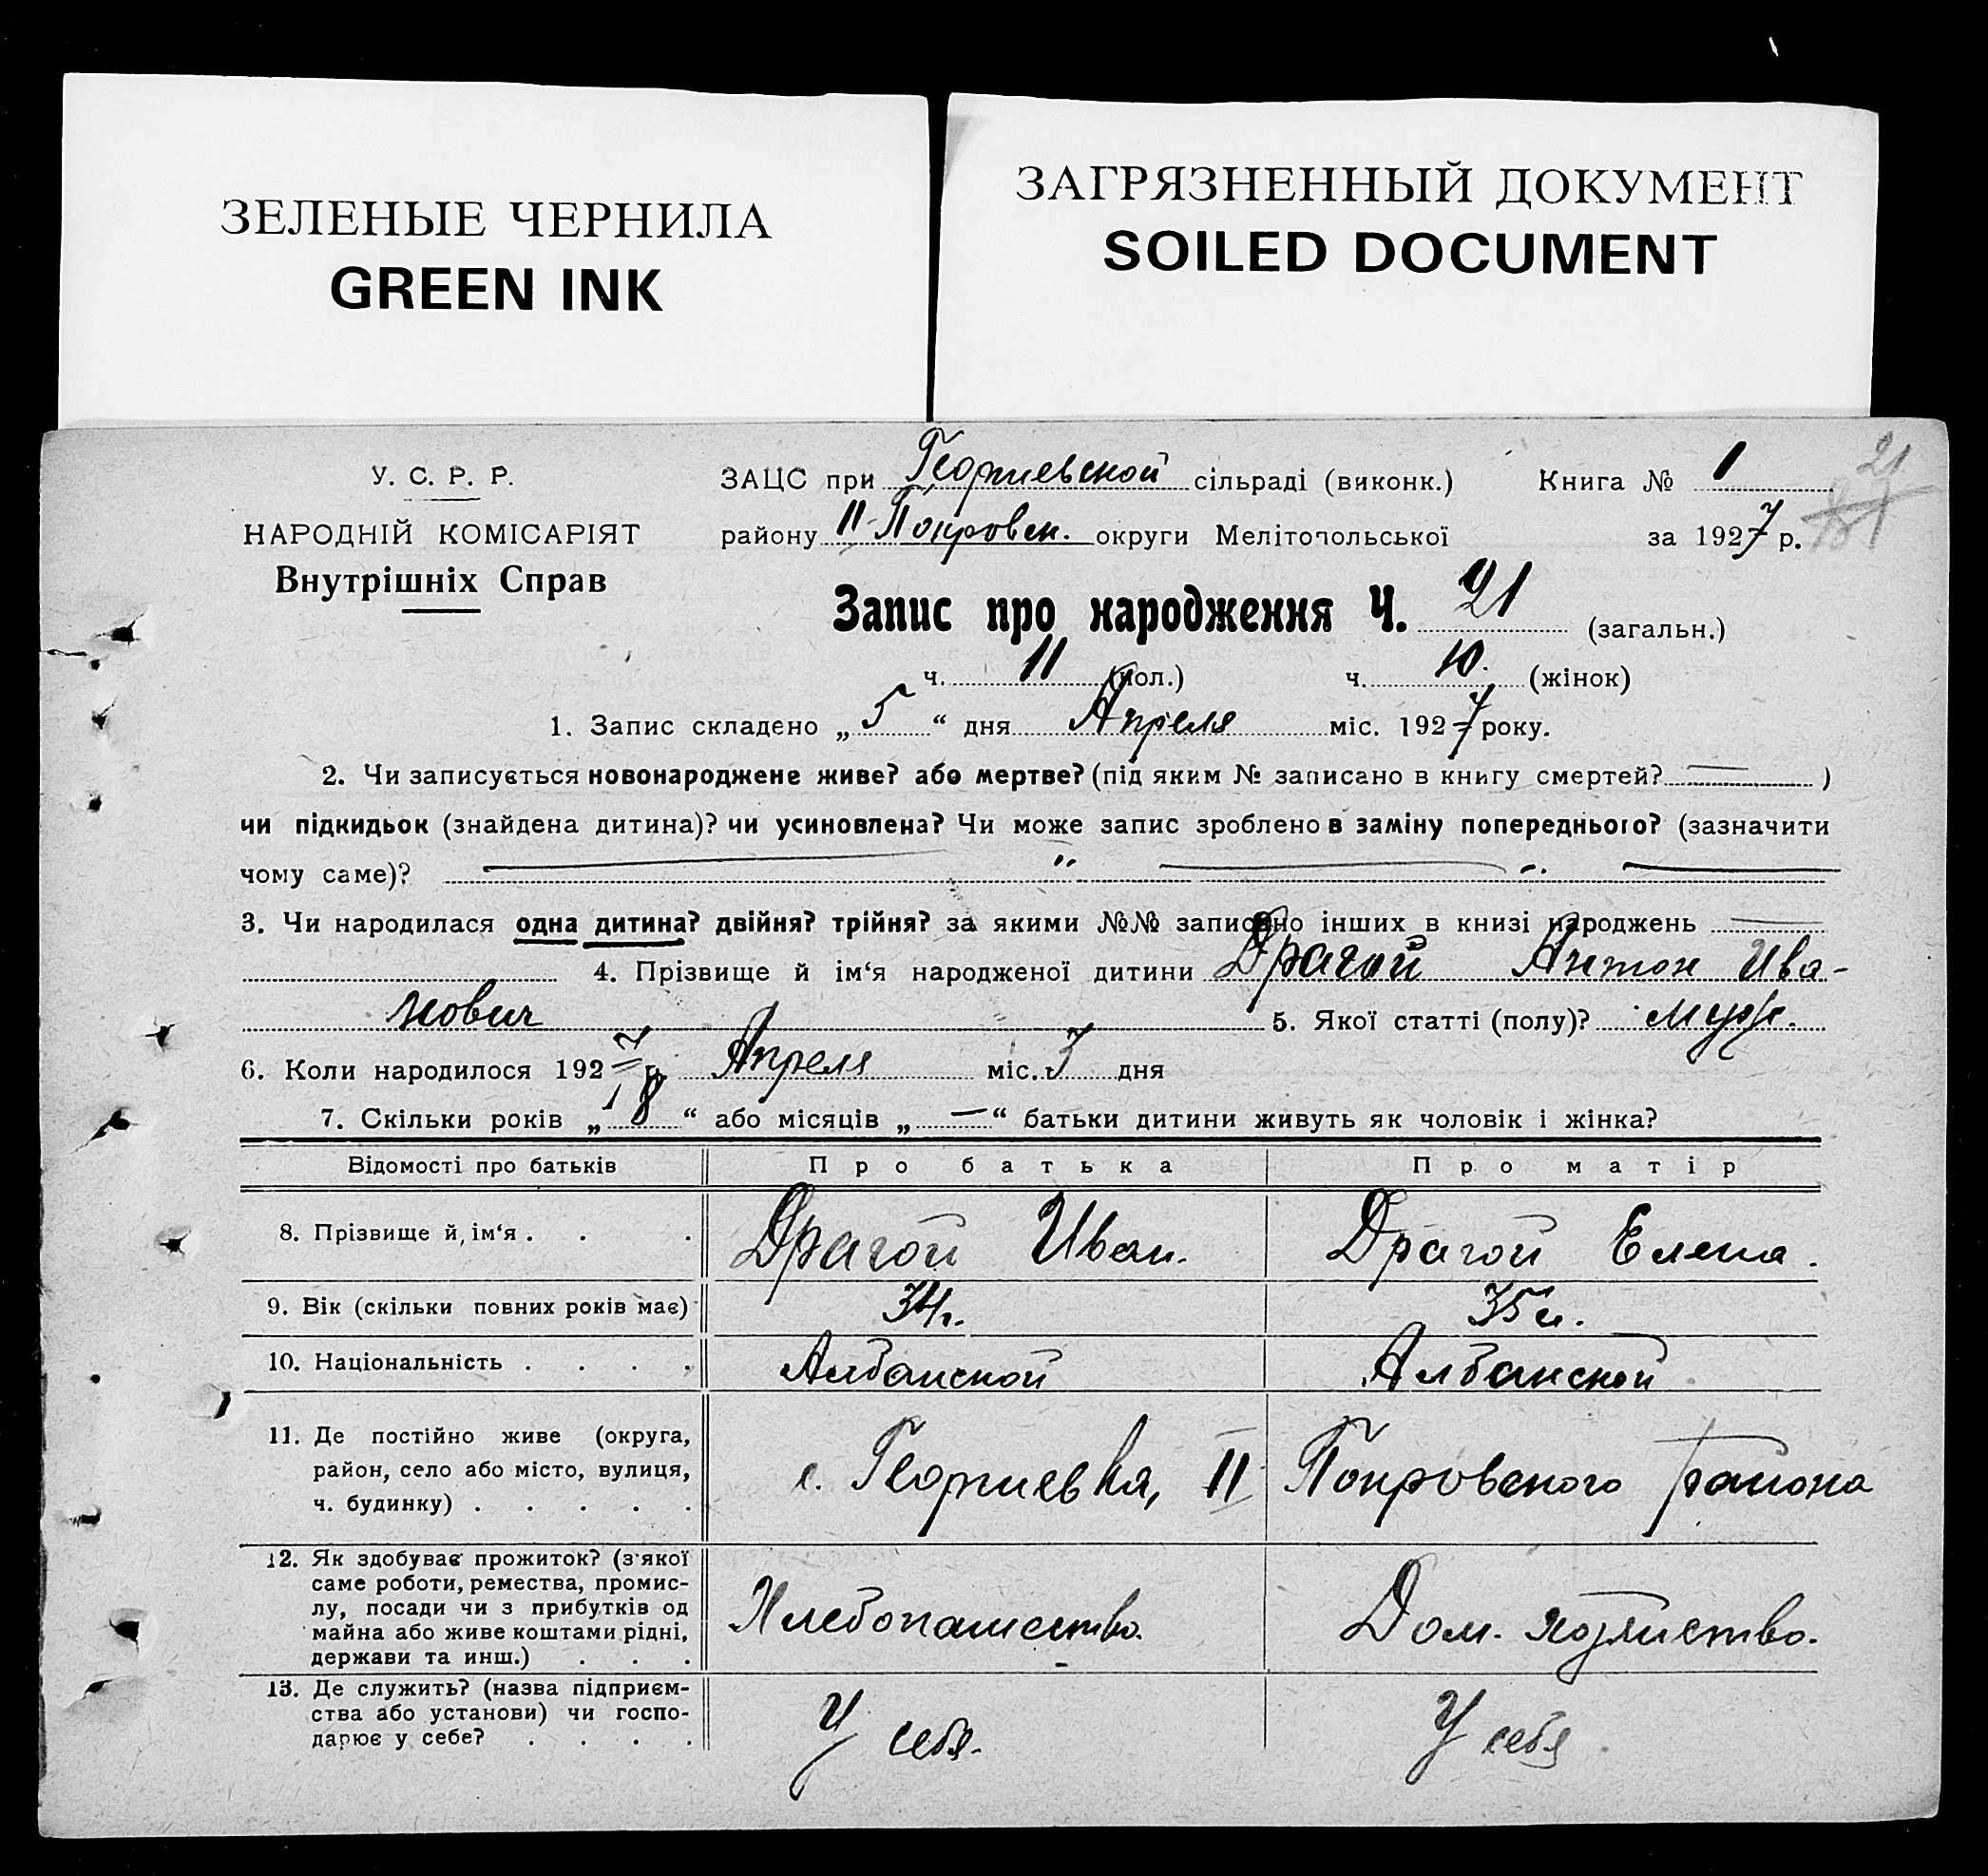 ЗЕЛЕНЫЕ ЧЕРНИЛА
GREEN INK
ЗАГРЯЗНЕННЫЙ ДОКУМЕНТ
SOILED DOCUMENT
У. С. Р. Р.
НАРОДНІЙ КОМІСАРІЯТ
Внутрішніх Справ
21
ЗАЦС при Георгиевской сільраді (виконк.) Книга № 1
району II Покровск. округи Мелітопольської за 1927 р.
Запис про народження Ч. 21 (загальн.)
ч. 11 (пол.) ч. 10. (жінок)
1. Запис складено „ 5 “ дня Апреля міс. 1927 року.
2. Чи записується новонароджене живе? або мертве? (під яким № записано в книгу смертей? — )
чи підкидьок (знайдена дитина)? чи усиновлена? Чи може запис зроблено в заміну попереднього? (зазначити
чому саме)? — „ — „ —
3. Чи народилася одна дитина? двійня? трійня? за якими №№ записано інших в книзі народжень —
4. Прізвище й ім‘я народженої дитини Драгой Антон Ива-
нович 5. Якої статті (полу)? муж.
6. Коли народилося 1927 р. Апреля міс. 3 дня
7. Скільки років „ 18 “ або місяців „ — “ батьки дитини живуть як чоловік і жінка?
Відомості про батьків Про батька Про матір
8. Прізвище й ім‘я . . . Драгой Иван. Драгой Елена.
9. Вік (скільки повних років має) 34 г. 35 л.
10. Національність . . . . Албанской Албанской
11. Де постійно живе (округа,
район, село або місто, вулиця,
ч. будинку) . . . . .
с. Георгиевка, II Покровского района
12. Як здобуває прожиток? (з якої
саме роботи, ремества, промис-
лу, посади чи з прибутків од
майна або живе коштами рідні,
держави та инш.) . . .
Хлебопашество. Дом. хозяйство.
13. Де служить? (назва підприєм-
ства або установи) чи госпо-
дарює у себе? . . . .
У себя. У себя